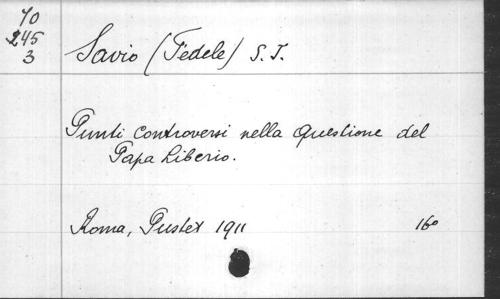 70
245
3
Savio (Fedele) S. J.
Punti controversi nella questione del
Papa Liberio.
Roma, Pustet 1911 16°